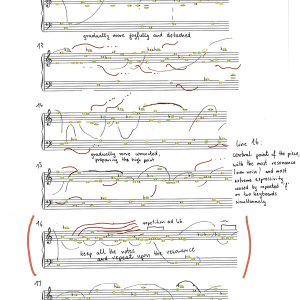 gradually more joyfully and detached
12
14
gradually more connected,
preparing the high point
15
line 16:
central point of the piece,
with the most resonance
and most
extreme expressivity
caused by repeated "f"
on two keyboards
simultaneously
16
repetition ad lib
keep all the notes
and repeat upon the resonance
17